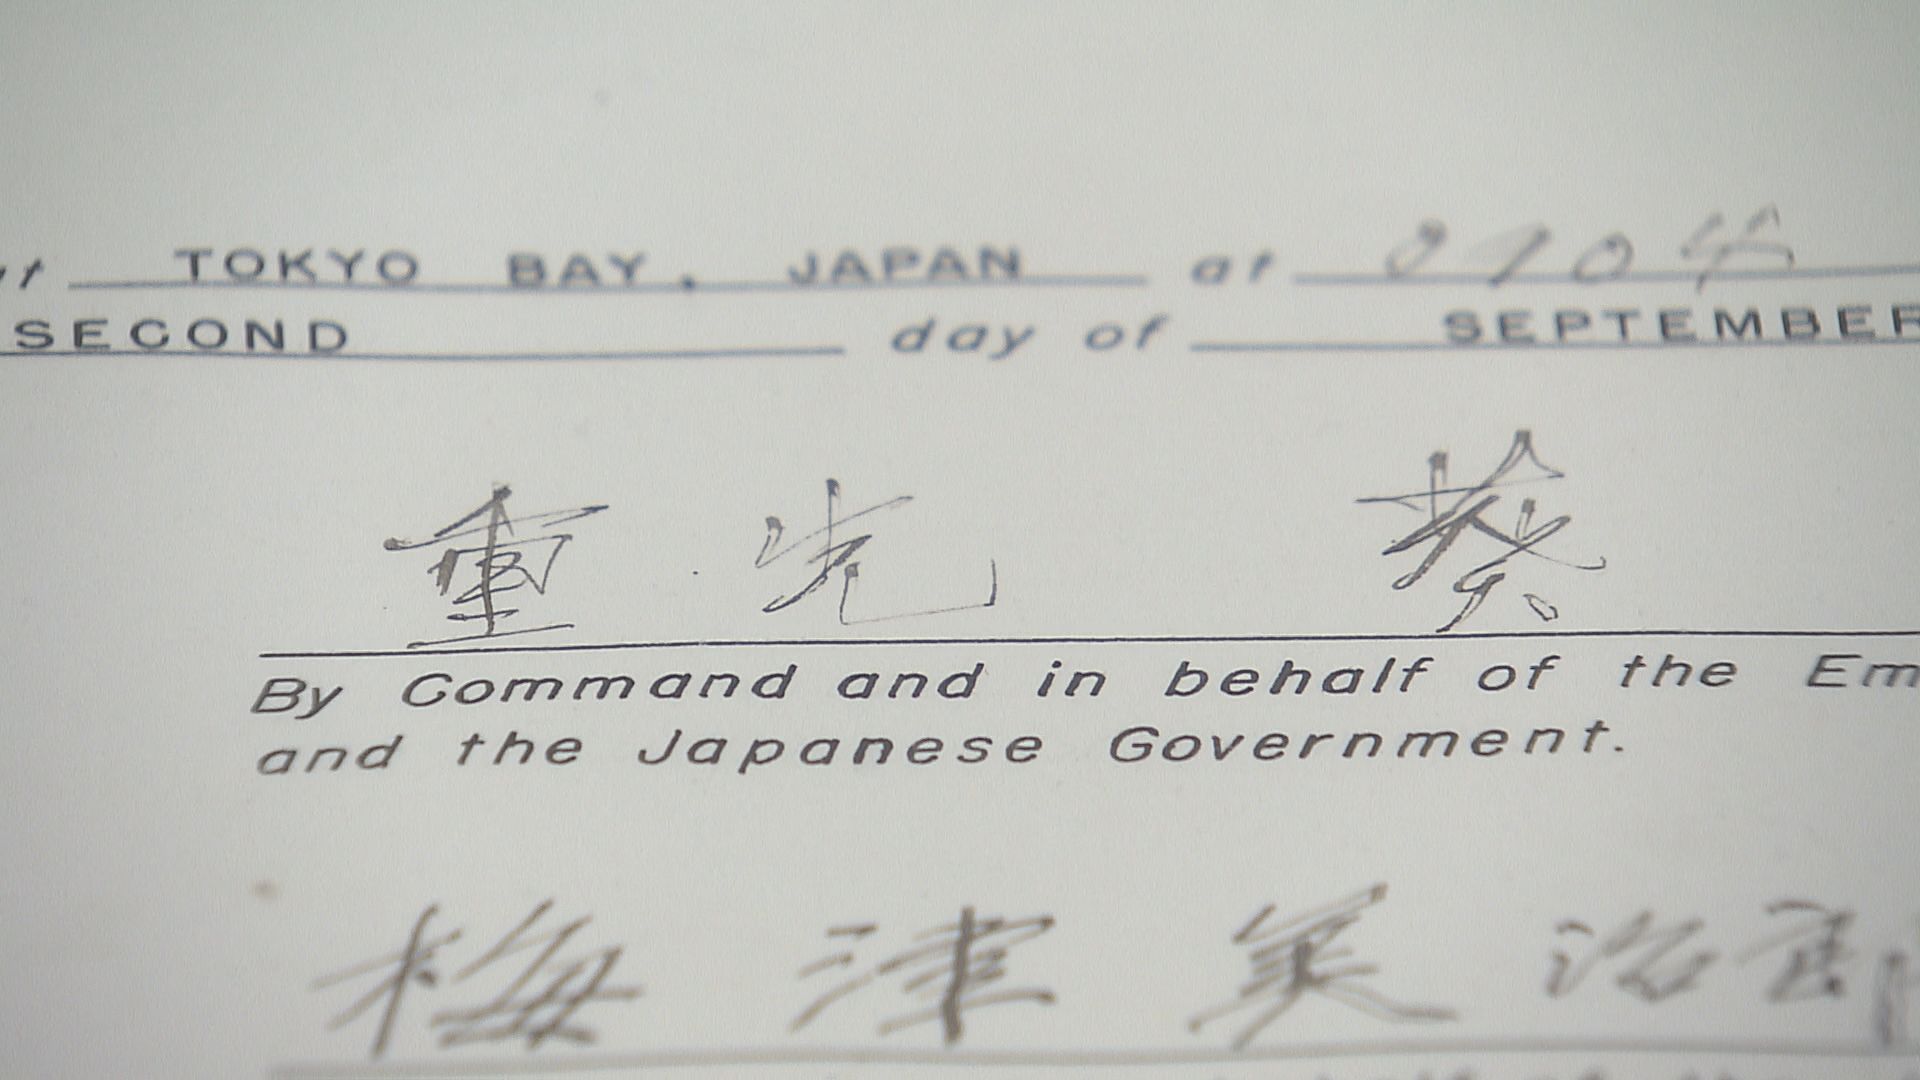 TOKYO BAY, JAPAN at 0904
SECOND day of SEPTEMBER
重光 葵
By Command and in behalf of the Em
and the Japanese Government.
梅津美治郎